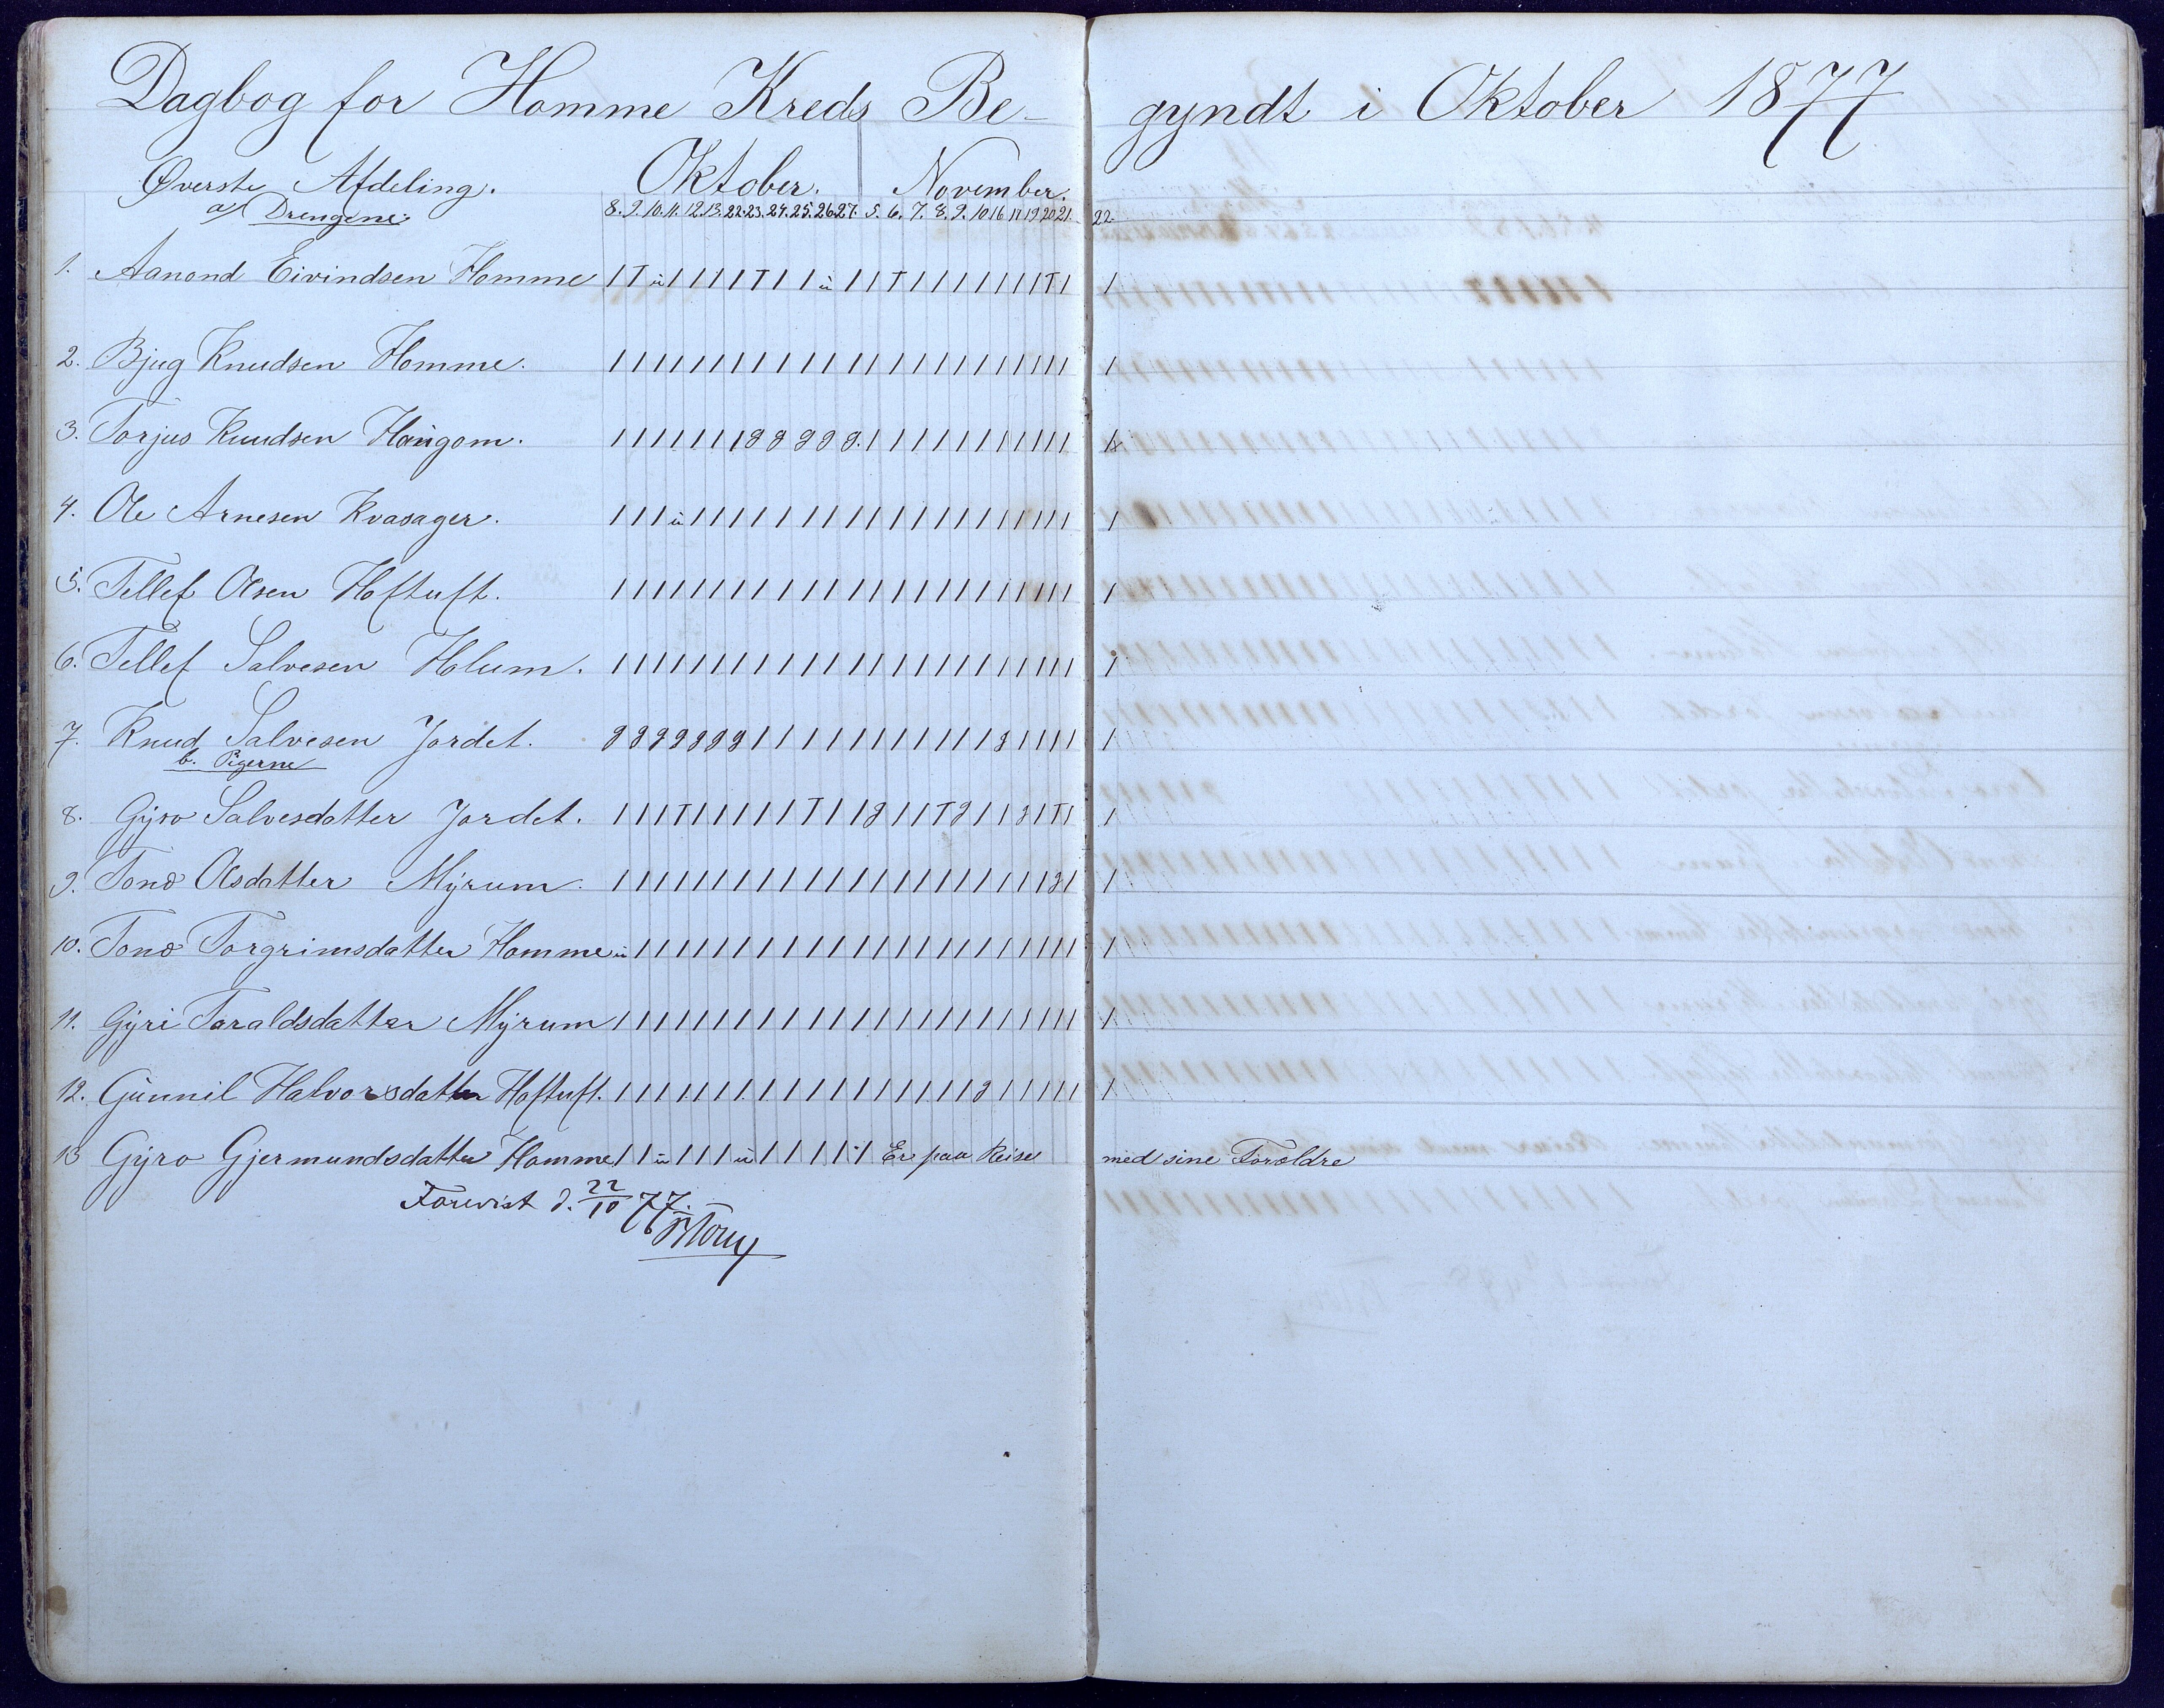 Dagbog for Homme Kreds Be- gyndt i Oktober 1877
Øverste Afdeling. Oktober. November.
a) Drengene. 8. 9. 10. 11. 12. 13. 22. 23. 24. 25. 26. 27. 5. 6. 7. 8. 9. 10 16 17 19 20 21. 22.
1. Aanond Eivindsen Homme / T u / / / / T / / u / / T / / / / / / / T / /
2. Bjug Knudsen Homme. / / / / / / / / / / / / / / / / / / / / / / / /
3. Torjus Knudsen Haugom. / / / / / / / g g g g g. / / / / / / / / / / / /
4. Ole Arnesen Kvasager. / / / u / / / / / / / / / / / / / / / / / / / /
5. Tellef Olsen Hoftuft. / / / / / / / / / / / / / / / / / / / / / / / /
6. Tellef Salvesen Holum. / / / / / / / / / / / / / / / / / / / / / / / /
7. Knud Salvesen Jordet. g g g g g g g / / / / / / / / / / / / g / / / / /
b. Pigerne
8. Gyro Salvesdatter Jordet. / / / T / / / / / / T / / g / / T g / / g / T / /
9. Tone Olsdatter Myrum. / / / / / / / / / / / / / / / / / / / / / / g / /
10. Tone Torgrimsdatter Homme u / / / / / / / / / / / / / / / / / / / / / / /
11. Gyri Taraldsdatter Myrum / / / / / / / / / / / / / / / / / / / / / / / /
12. Gunnil Halvorsdatter Hoftuft. / / / / / / / / / / / / / / / / / / g / / / / / /
13 Gyro Gjermundsdatter Homme / / u / / / u / / / / / / Er paa Reise med sine Forældre
Forevist d. 22/10 77.